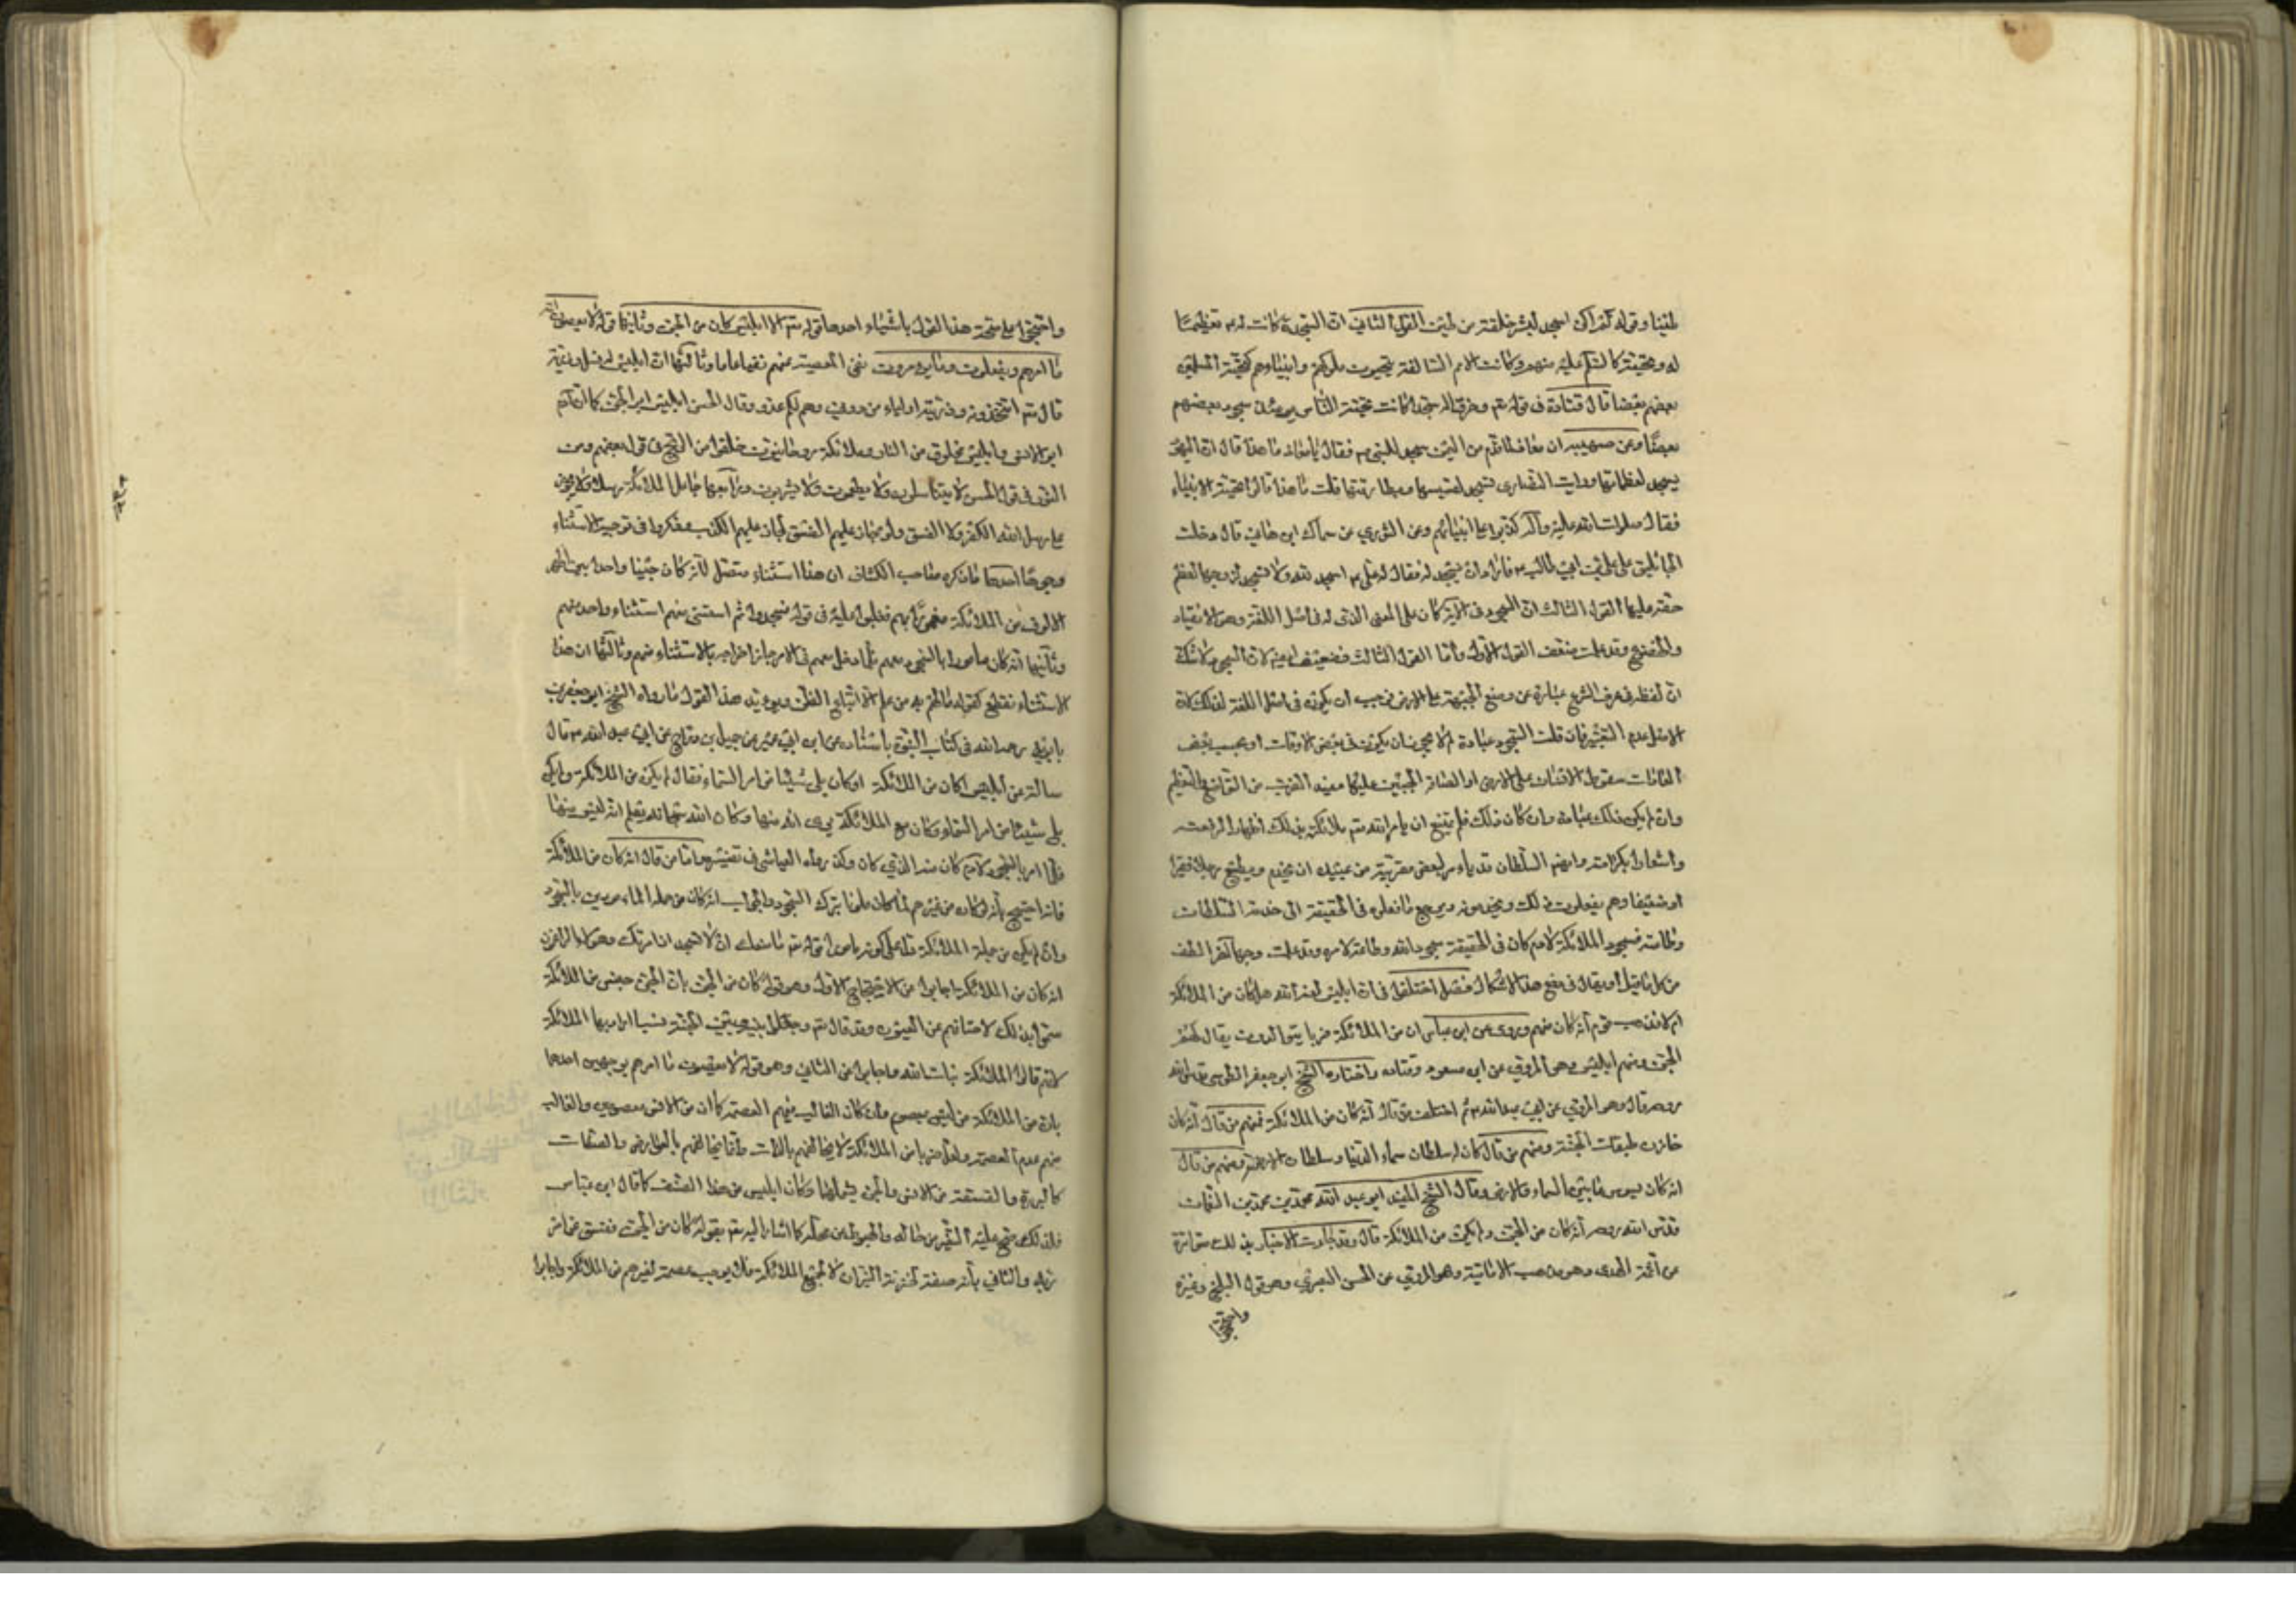 طينا وقوله لم اكن اسجد لبشر خلقته من طين القول الثاني ان السجدة كانت لآدم تعظيما
له وتحية كالسلام عليه منهم وكانت الامم السالفة يحيون ملوكهم وانبياءهم كتحية المسلمين
بعضهم بعضا قال قتادة في قوله تع وخروا له سجدا كانت تحية الناس يومئذ سجود بعضهم
بعضا وعن صهيب ان معاذ لما قدم من اليمن سجد للنبي ص فقال يا معاذ ما هذا قال ان اليهود
يسجد لعظمائها ورايت النصارى تسجد لقسيسها وبطارقتها قلت ما هذا قالوا تحية الانبياء
فقال صلوات الله عليه وآله كذبوا على انبيائهم وعن الثوري عن سماك ابن هاني قال دخلت
الجاثليق على علي بن ابي طالب ع فاراد ان يسجد له فقال له علي ع اسجد لله ولا تسجد لي
حقه عليها القول الثالث ان السجود في الآية كان على المعنى الذي له في اصل اللغة وهو الانقياد
والخضوع وقد علمت ضعف القول الاول واما القول الثالث فضعيف ايضا لان السجود لا شك
ان لفظه في عرف الشرع عبارة عن وضع الجبهة على الارض فوجب ان يكون في اصل اللغة كذلك لان
الاصل عدم التغيير فان قلت السجود عبادة لم لا يجوز ان يكون في بعض الاوقات او بحسب بعض
العادات سقوط الانسان على الارض او الصاق الجبين عليها مفيد لضرب من التواضع والتعظيم
وان لم يكن ذلك عبادة وان كان ذلك فلم يمتنع ان يأمر الله تع ملائكته بذلك اظهارا لرفعته
واشعارا بكرامته السلطان قد يأمر لبعض مقربيه من عبيده ان يخدم ويطيع رجلا فقيرا
او ضعيفا وهم يفعلون ذلك ويخدمونه ويرجع ما فعلوه في الحقيقة الى خدمة السلطان
وطاعته فسجود الملائكة لآدم كان في الحقيقة سجودا لله وطاعة لامره وقد علمت وجها آخر الطف
من كل ما قيل او يقال في دفع هذا الاشكال فصل اختلفوا في ان ابليس لعنه الله هل كان من الملائكة
ام لا فذهب قوم انه كان منهم وروي عن ابن عباس ان من الملائكة ضربا يتوالدون يقال لهم
الجن ومنهم ابليس وهو المروي عن ابن مسعود وقتادة واختاره الشيخ ابو جعفر الطوسي قدس الله
روحه قال وهو المروي عن ابي عبد الله ع ثم اختلف من قال انه كان من الملائكة فمنهم من قال انه كان
خازن طبقات الجنة ومنهم من قال كان له سلطان سماء الدنيا وسلطان الارض ومنهم من قال
انه كان يسوس ما بين السماء والارض وقال الشيخ المفيد ابو عبد الله محمد بن محمد بن النعمان
قدس الله روحه انه كان من الجن ولم يكن من الملائكة قال وقد جاءت الاخبار بذلك متواترة
من أئمة الهدى وهو مذهب الامامية وهو المروي عن الحسن البصري وهو قول البلخي وغيره
واحتجوا
واحتجوا على صحة هذا القول باشياء احدها قوله تع الا ابليس كان من الجن وثانيها قوله لا يعصون الله
ما امرهم ويفعلون ما يؤمرون نفى المعصية عنهم نفيا عاما وثالثها ان ابليس له نسل وذرية
قال تع افتتخذونه وذريته اولياء من دوني وهم لكم عدو وقال الحسن ابليس ابو الجن كما ان آدم
ابو الانس وابليس مخلوق من النار والملائكة روحانيون خلقوا من الريح في قول بعضهم ومن
النور في قول الحسن لا يتناسلون ولا يطعمون ولا يشربون ورابعها جاعل الملائكة رسلا ولا يجوز
على رسل الله الكفر ولا الفسق ولو جاز عليهم الفسق لجاز عليهم الكذب وذكروا في توجيه الاستثناء
وجوها احدها ما ذكره صاحب الكشاف ان هذا استثناء متصل لانه كان جنيا واحدا بين اظهر
الالوف من الملائكة مغمورا بهم فغلبوا عليه في قوله فسجدوا ثم استثنى منهم استثناء واحد منهم
وثانيها انه كان مأمورا بالسجود معهم فلما دخل معهم في الامر جاز اخراجه بالاستثناء منهم وثالثها ان هذا
الاستثناء منقطع كقوله ما لهم به من علم الا اتباع الظن ويؤيد هذا القول ما رواه الشيخ ابو جعفر بن
بابويه رحمه الله في كتاب النبوة باسناده عن ابن ابي عمير عن جميل بن دراج عن ابي عبد الله ع قال
سالته عن ابليس اكان من الملائكة او كان يلي شيئا من امر السماء فقال لم يكن من الملائكة ولم يكن
يلي شيئا من امر السماء وكان مع الملائكة يرى انه منها وكان الله سبحانه يعلم انه ليس منها
فلما امر بالسجود لآدم كان منه الذي كان وكذا رواه العياشي في تفسيره واما من قال انه كان من الملائكة
فانه احتج بانه لو كان من غيرهم لما كان ملوما بترك السجود والجواب انه كان من جملة المأمورين بالسجود
وان لم يكن من جملة الملائكة قوله تع ما منعك ان لا تسجد اذ امرتك
انه كان من الملائكة اجابوا عن الاحتجاج الاول وهو قوله كان من الجن بان الجن جنس من الملائكة
سموا بذلك لاجتنانهم عن العيون وقد قال تع وجعلوا بينه وبين الجنة نسبا اراد بها الملائكة
لانهم قالوا الملائكة بنات الله واجابوا عن الثاني وهو قوله لا يعصون ما امرهم بوجهين احدهما
بان من الملائكة من ليس بمعصوم وان كان الغالب فيهم العصمة كما ان من الانس معصومين والغالب
منهم عدم العصمة ولعل ضربا من الملائكة لا يخالفهم بالذات وانما يخالفهم بالعوارض والصفات
كالبررة والفسقة من الانس والجن يشملهما وكان ابليس من هذا الصنف كما قال ابن عباس
فلذلك صح عليه التغير من حاله والهبوط من محله كما اشار اليه تع بقوله كان من الجن ففسق عن امر
ربه والثاني بأنه صفة لخزنة النيران لا لجميع الملائكة فلا يوجب عصمة لغيرهم من الملائكة واجابوا